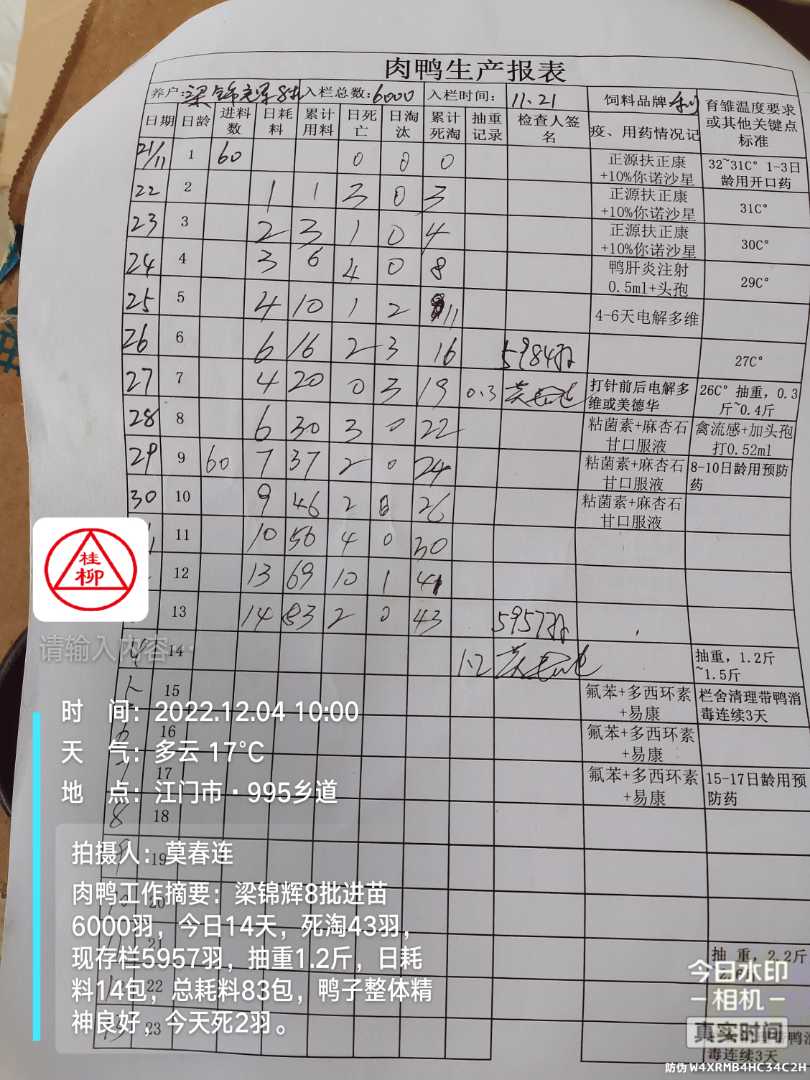 肉鸭生产报表
养户:梁锦辉8批 入栏总数:6000 入栏时间: 11.21 饲料品牌 育雏温度要求或其他关键点标准
日期 日龄 进料数 日耗料 累计用料 日死亡 日淘汰 累计死淘 抽重记录 检查人签名 疫、用药情况记
21/11 1 60 0 0 0 正源扶正康+10%你诺沙星 32~31C° 1-3日龄用开口药
22 2 1 1 3 0 3 正源扶正康+10%你诺沙星 31C°
23 3 2 3 1 0 4 正源扶正康+10%你诺沙星 30C°
24 4 3 6 4 0 8 鸭肝炎注射0.5ml+头孢 29C°
25 5 4 10 1 2 11 4-6天电解多维
26 6 6 16 2 3 16 5984羽 27C°
27 7 4 20 0 3 19 0.3 打针前后电解多维或美德华 26C° 抽重,0.3斤~0.4斤
28 8 6 30 3 0 22 粘菌素+麻杏石甘口服液 禽流感+加头孢打0.52ml
29 9 60 7 37 2 0 24 粘菌素+麻杏石甘口服液 8-10日龄用预防药
30 10 9 46 2 0 26 粘菌素+麻杏石甘口服液
11 10 56 4 0 30
12 13 69 10 1 41
13 14 83 2 0 43 5957羽
4 14 1.2 抽重,1.2斤~1.5斤
15 氟苯+多西环素+易康 栏舍清理带鸭消毒连续3天
6 16 氟苯+多西环素+易康
17 氟苯+多西环素+易康 15-17日龄用预防药
8 18
19
20
21 抽 重,2.2斤
22
23 毒连续3天
桂柳
请输入内容…
时 间:2022.12.04 10:00
天 气:多云 17°C
地 点:江门市·995乡道
拍摄人:莫春连
肉鸭工作摘要:梁锦辉8批进苗
6000羽,今日14天,死淘43羽,
现存栏5957羽,抽重1.2斤,日耗
料14包,总耗料83包,鸭子整体精
神良好,今天死2羽。
今日水印
相机
真实时间
防伪 W4XRMB4HC34C2H